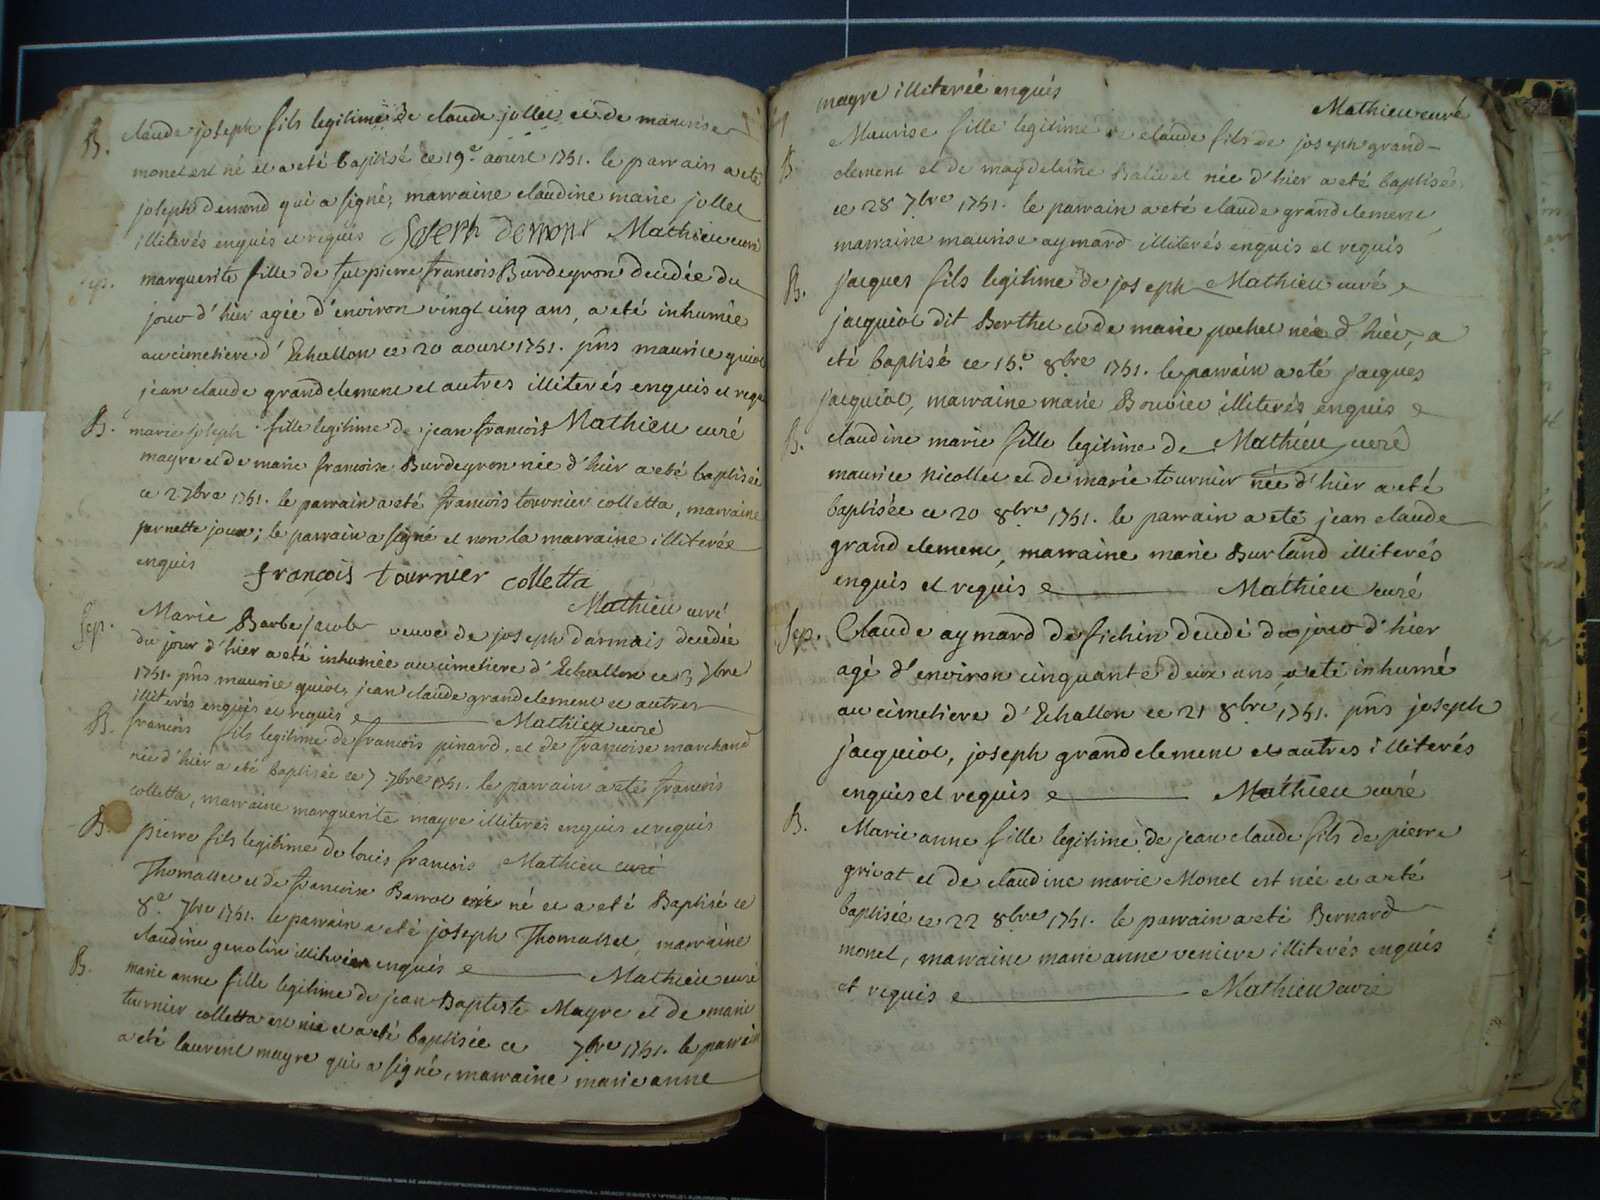 B. claude joseph fils legitime de claude jollet et de maurise
monet est né et a eté baptisé ce 19e aoust 1751. le parrain a eté
joseph demond qui a signé, marraine claudine marie jollet
illiterés enquis et requis Joseph Demont Mathieu curé
Sep. marguerite fille de pierre françois Burdeyron decedée du
jour d'hier agée d'environ vingt cinq ans, a eté inhumée
au cimetiere d'Echallon ce 20 aoust 1751. pñs maurice guiot
jean claude grandclement et autres illiterés enquis et requis
B. marie joseph fille legitime de jean françois Mathieu curé
mayre et de marie francoise Burdeyron née d'hier a eté baptisée
ce 2 7bre 1751. le parrain a eté françois tournier colletta, marraine
pernette joux; le parrain a signé et non la marraine illiterée
enquis françois tournier colletta
Mathieu curé
Sep. Marie Barbe jacob veuve de joseph darmais decedée
du jour d'hier a eté inhumée au cimetiere d'Echallon ce 3 7bre
1751. pñs maurice guiot, jean claude grandclement et autres
illiterés enquis et requis Mathieu curé
B. francois fils legitime de francois pinard, et de francoise marchand
née d'hier a eté baptisée ce 7 7bre 1751. le parrain a eté francois
colletta, marraine marguerite mayre illiterés enquis et requis
B. pierre fils legitime de louis francois Mathieu curé
Thomasset et de francoise Barrot né et a eté Baptisé ce
8e 7bre 1751. le parrain a eté joseph Thomasset, marraine
claudine genolin illiterées enquis Mathieu curé
B. marie anne fille legitime de jean Baptiste Mayre et de marie
turnier colletta est née et a eté baptisée ce 7bre 1751. le parrain
a eté laurent mayre qui a signé, marraine marie anne
mayre illiterée enquis
Mathieu curé
B Maurise fille legitime de claude fils de joseph grand-
clement et de magdeleine Balivet née d'hier a eté baptisée
ce 28 7bre 1751. le parrain a eté claude grandclement
marraine maurise aymard illiterés enquis et requis
B. jacques fils legitime de joseph Mathieu curé
jacquiot dit Berthet et de marie pochet née d'hier, a
eté baptisé ce 15e 8bre 1751. le parrain a eté jacques
jacquiot, marraine marie Bouvier illiterés enquis
B. claudine marie fille legitime de Mathieu curé
maurice nicollet et de marie tournier née d'hier a eté
baptisée ce 20 8bre 1751. le parrain a eté jean claude
grandclement, marraine marie Burland illiterés
enquis et requis Mathieu curé
Sep. Claude aymard defichin decedé du jour d'hier
agé d'environ cinquante deux ans, a eté inhumé
au cimetiere d'Echallon ce 21 8bre 1751. pñs joseph
jacquiot, joseph grandclement et autres illiterés
enquis et requis Mathieu curé
B. Marie anne fille legitime de jean claude fils de pierre
grivat et de claudine marie Monet est née et a eté
baptisée ce 22 8bre 1751. le parrain a eté Bernard
monet, marraine marie anne veniere illiterés enquis
et requis Mathieu curé